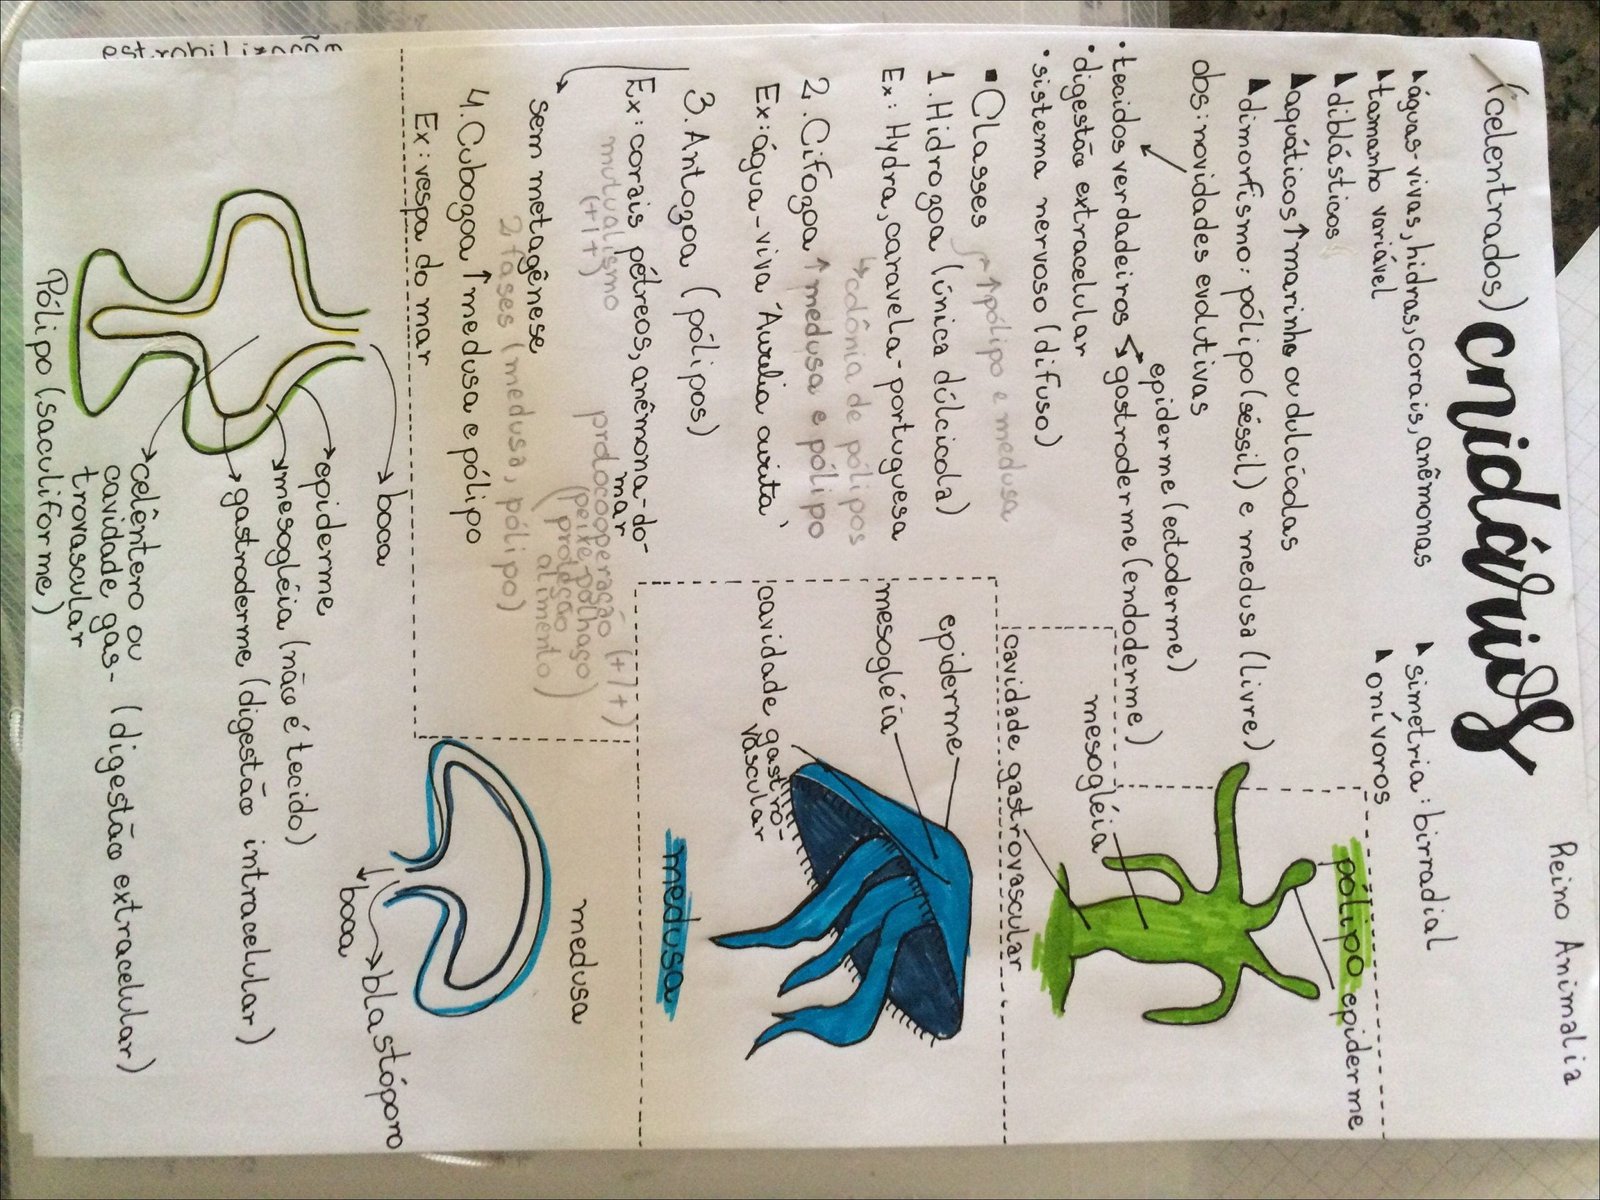 Reino Animalia
(celentrados) cnidários
▲ águas-vivas, hidras, corais, anêmonas
▲ tamanho variável
▲ diblásticos
▲ aquáticos ↑ marinho ou dulcícolas
▲ dimorfismo: pólipo (séssil) e medusa (livre)
▲ simetria: birradial
▲ onívoros
obs: novidades evolutivas
• tecidos verdadeiros
epiderme (ectoderme)
gastroderme (endoderme)
• digestão extracelular
• sistema nervoso (difuso)
▪ Classes
↑ pólipo e medusa
1. Hidrozoa (única dulcícola)
Ex: Hydra, caravela-portuguesa
↳ colônia de pólipos
2. Cifozoa ↑ medusa e pólipo
Ex: água-viva "Aurelia aurita"
3. Antozoa (pólipos)
Ex: corais pétreos, anêmona-do-
mar
mutualismo
(+/+)
protocooperação (+/+)
(peixe palhaço)
(proteção
alimento)
sem metagênese
2 fases (medusa, pólipo)
4. Cubozoa ↑ medusa e pólipo
Ex: vespa do mar
pólipo
epiderme
mesogléia
cavidade gastrovascular
epiderme
mesogléia
cavidade gastro-
vascular
medusa
medusa
blastóporo
boca
boca
epiderme
mesogléia (não é tecido)
gastroderme (digestão intracelular)
celêntero ou
cavidade gas- (digestão extracelular)
trovascular
Pólipo (saculiforme)
estrobilização